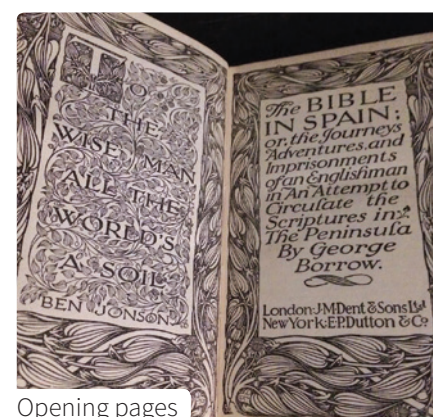 TO
THE
WISE MAN
ALL THE
WORLD'S
A SOIL
BEN JONSON
The BIBLE
IN SPAIN;
or, the Journeys
Adventures, and
Imprisonments
of an Englishman
in An Attempt to
Circulate the
Scriptures in
The Peninsula
By George
Borrow.
London: J.M Dent & Sons Ltd
New York: E.P. Dutton & Co
Opening pages